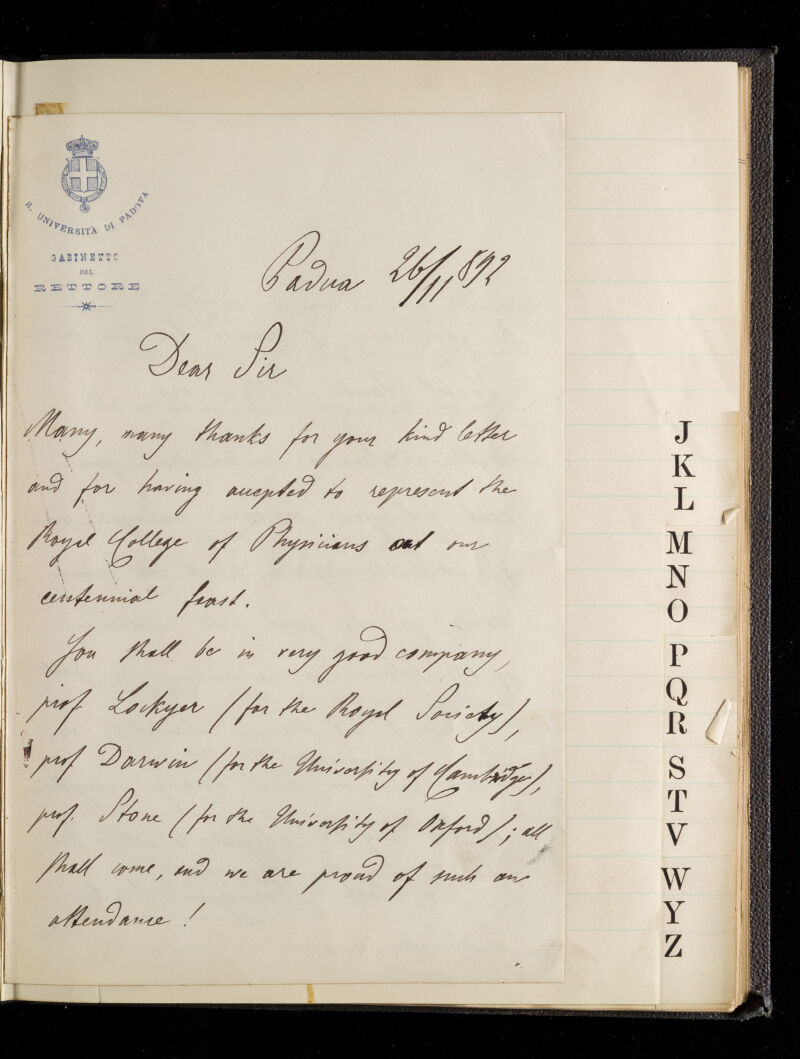 R. UNIVERSITÀ DI PADOVA
GABINETTO
DEL
RETTORE
Padua 26/11 892
Dear Sir
Many, many thanks for your kind letter
and for having accepted to represent the
Royal College of Physicians at our
centennial feast.
You shall be in very good company,
prof. Lockyer (for the Royal Society),
prof Darwin (for the University of Cambridge),
prof. Stone (for the University of Oxford); all
shall come, and we are proud of such an
attendance!
J
K
L
M
N
O
P
Q
R
S
T
V
W
Y
Z